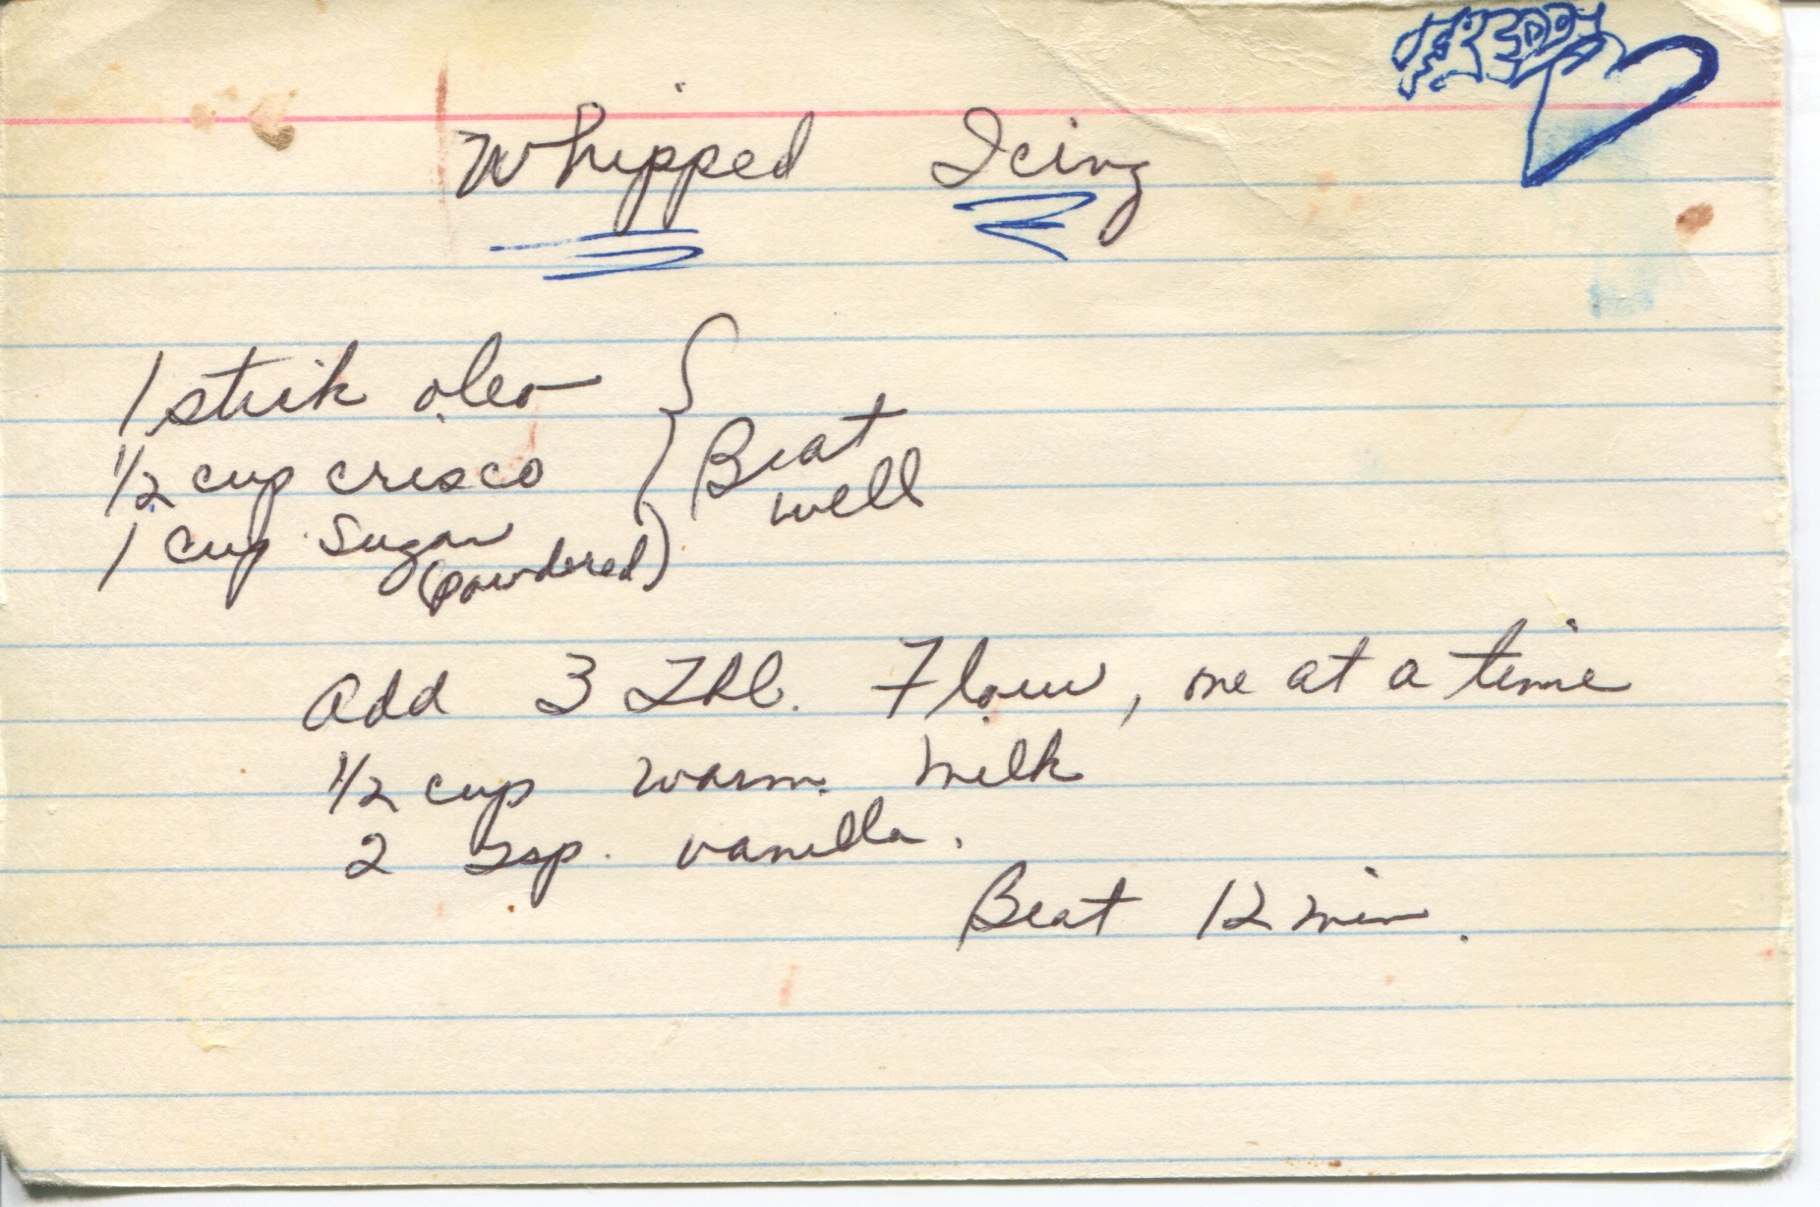 FREDDY
Whipped Icing
1 stick oleo
1/2 cup crisco
1 cup sugar
(powdered)
Beat
well
Add 3 Tbl. Flour, one at a time
1/2 cup warm milk
2 Tsp. vanilla.
Beat 12 min.